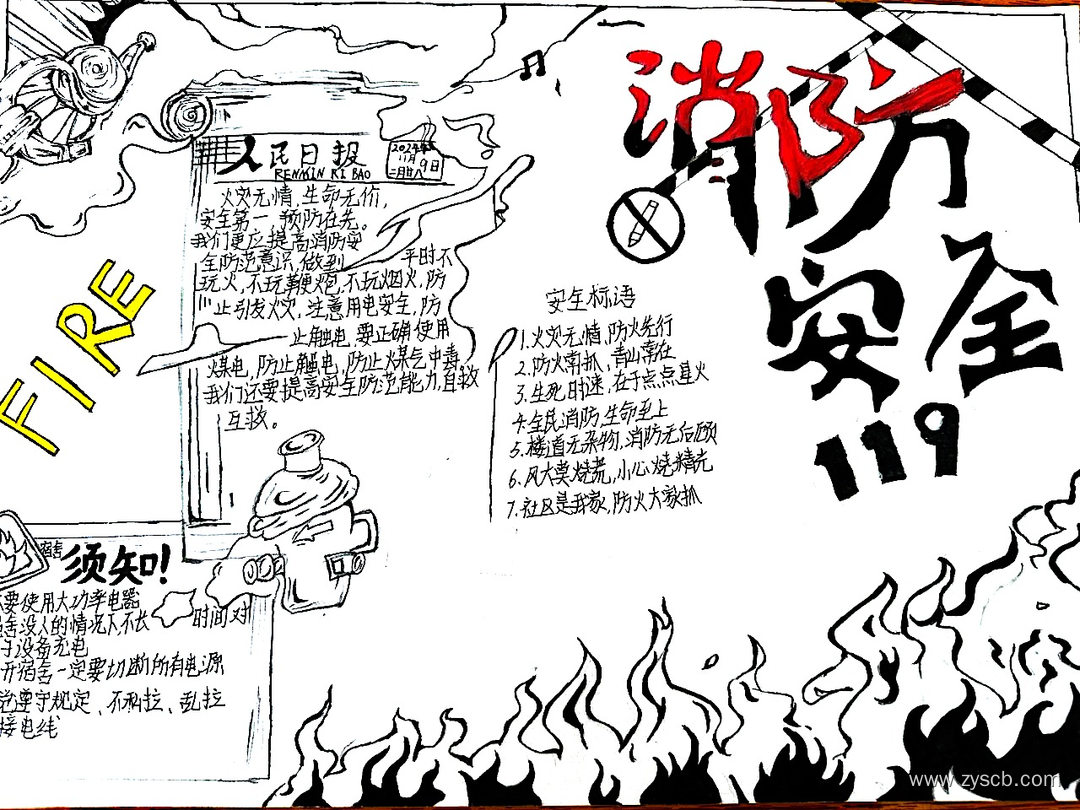 消防
安全
119
FIRE
人民日报
RENMIN RI BAO
2024年
11月9日
火灾无情,生命无价,
安全第一,预防在先。
我们更应提高消防安
全防范意识,做到 平时不
玩火,不玩鞭炮,不玩烟火,防
止引发火灾,注意用电安全,防
止触电,要正确使用
煤电,防止触电,防止煤气中毒,
我们还要提高安全防范能力,自救
互救。
安全标语
1.火灾无情,防火先行
2.防火常抓,青山常在
3.生死时速,在于点点星火
4.全民消防,生命至上
5.楼道无杂物,消防无后顾
6.风大莫烧荒,小心烧精光
7.社区是我家,防火大家抓
宿舍
须知!
要使用大功率电器
舍没人的情况下,不长 时间对
于设备充电
开宿舍一定要切断所有电源
遵守规定、不私拉、乱拉
接电线
www.zyscb.com